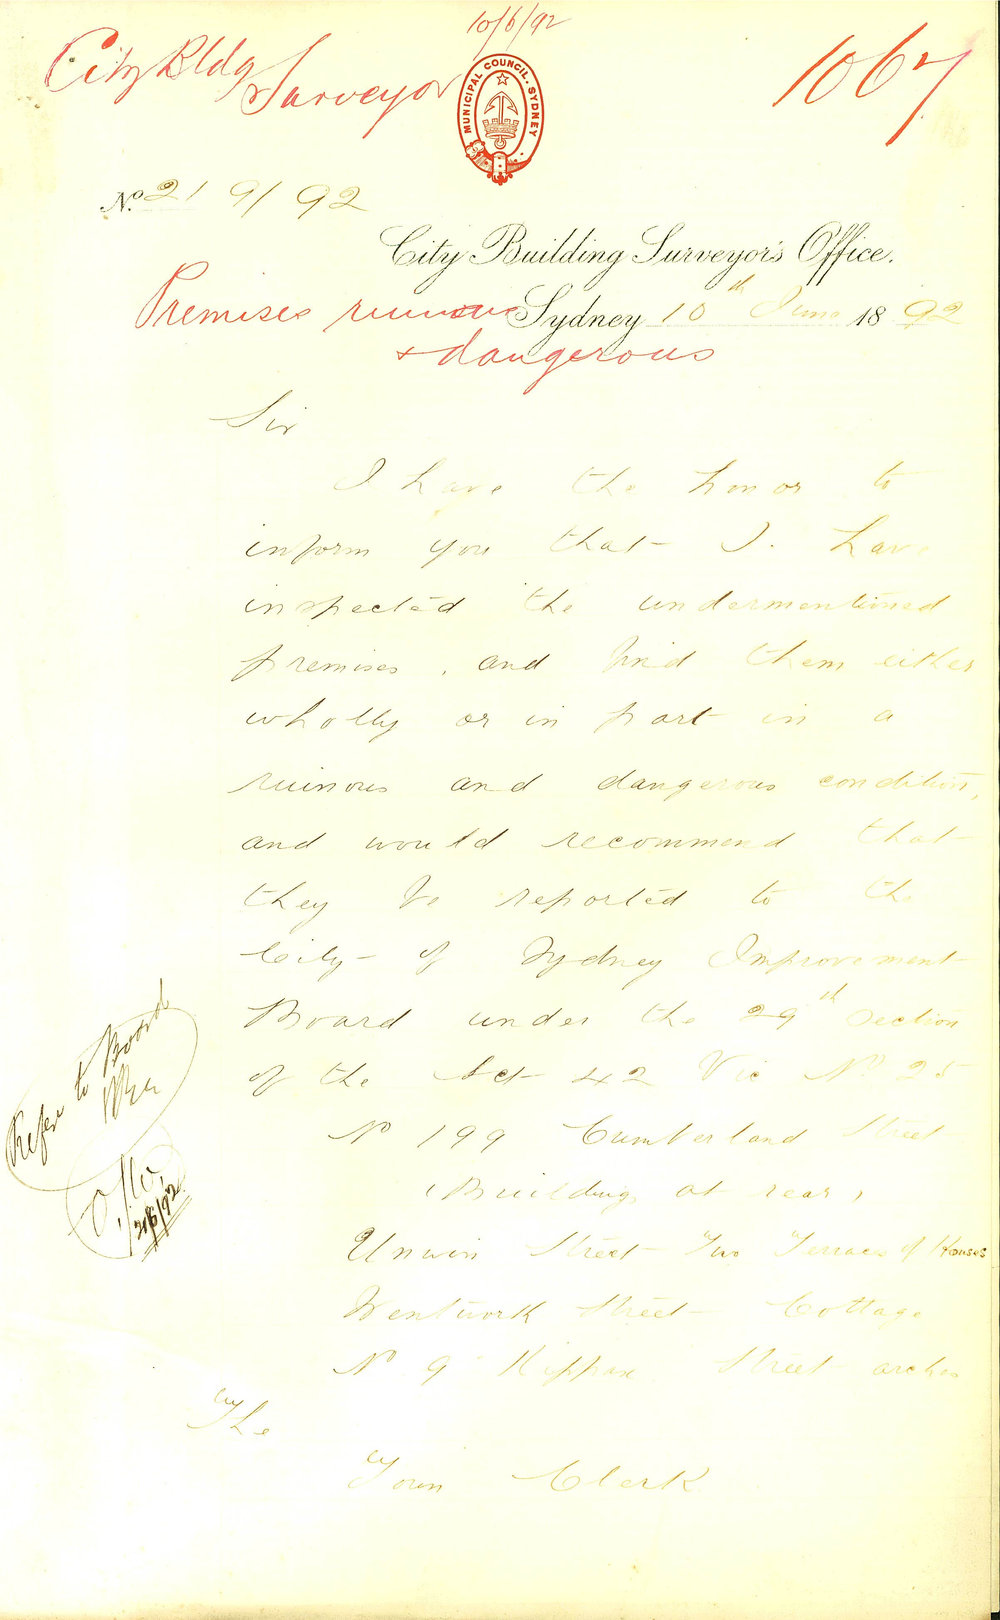 10/6/92
City Bldg
Surveyor
1067
MUNICIPAL COUNCIL. SYDNEY
No. 219/92
City Building Surveyor's Office.
Premises ruinous Sydney 10th June 1892
& dangerous
Sir
I have the honor to
inform you that I have
inspected the undermentioned
premises, and find them either
wholly or in part in a
ruinous and dangerous condition,
and would recommend that
they be reported to the
City of Sydney Improvement
Board under the 29th Section
of the Act 42 Vic No 25
No 199 Cumberland Street
(Building at rear)
Unwin Street Two Terraces of Houses
Wentworth Street Cottage
No 9 Kippax Street arches
Refer to Board
21/6/92
The
Town Clerk